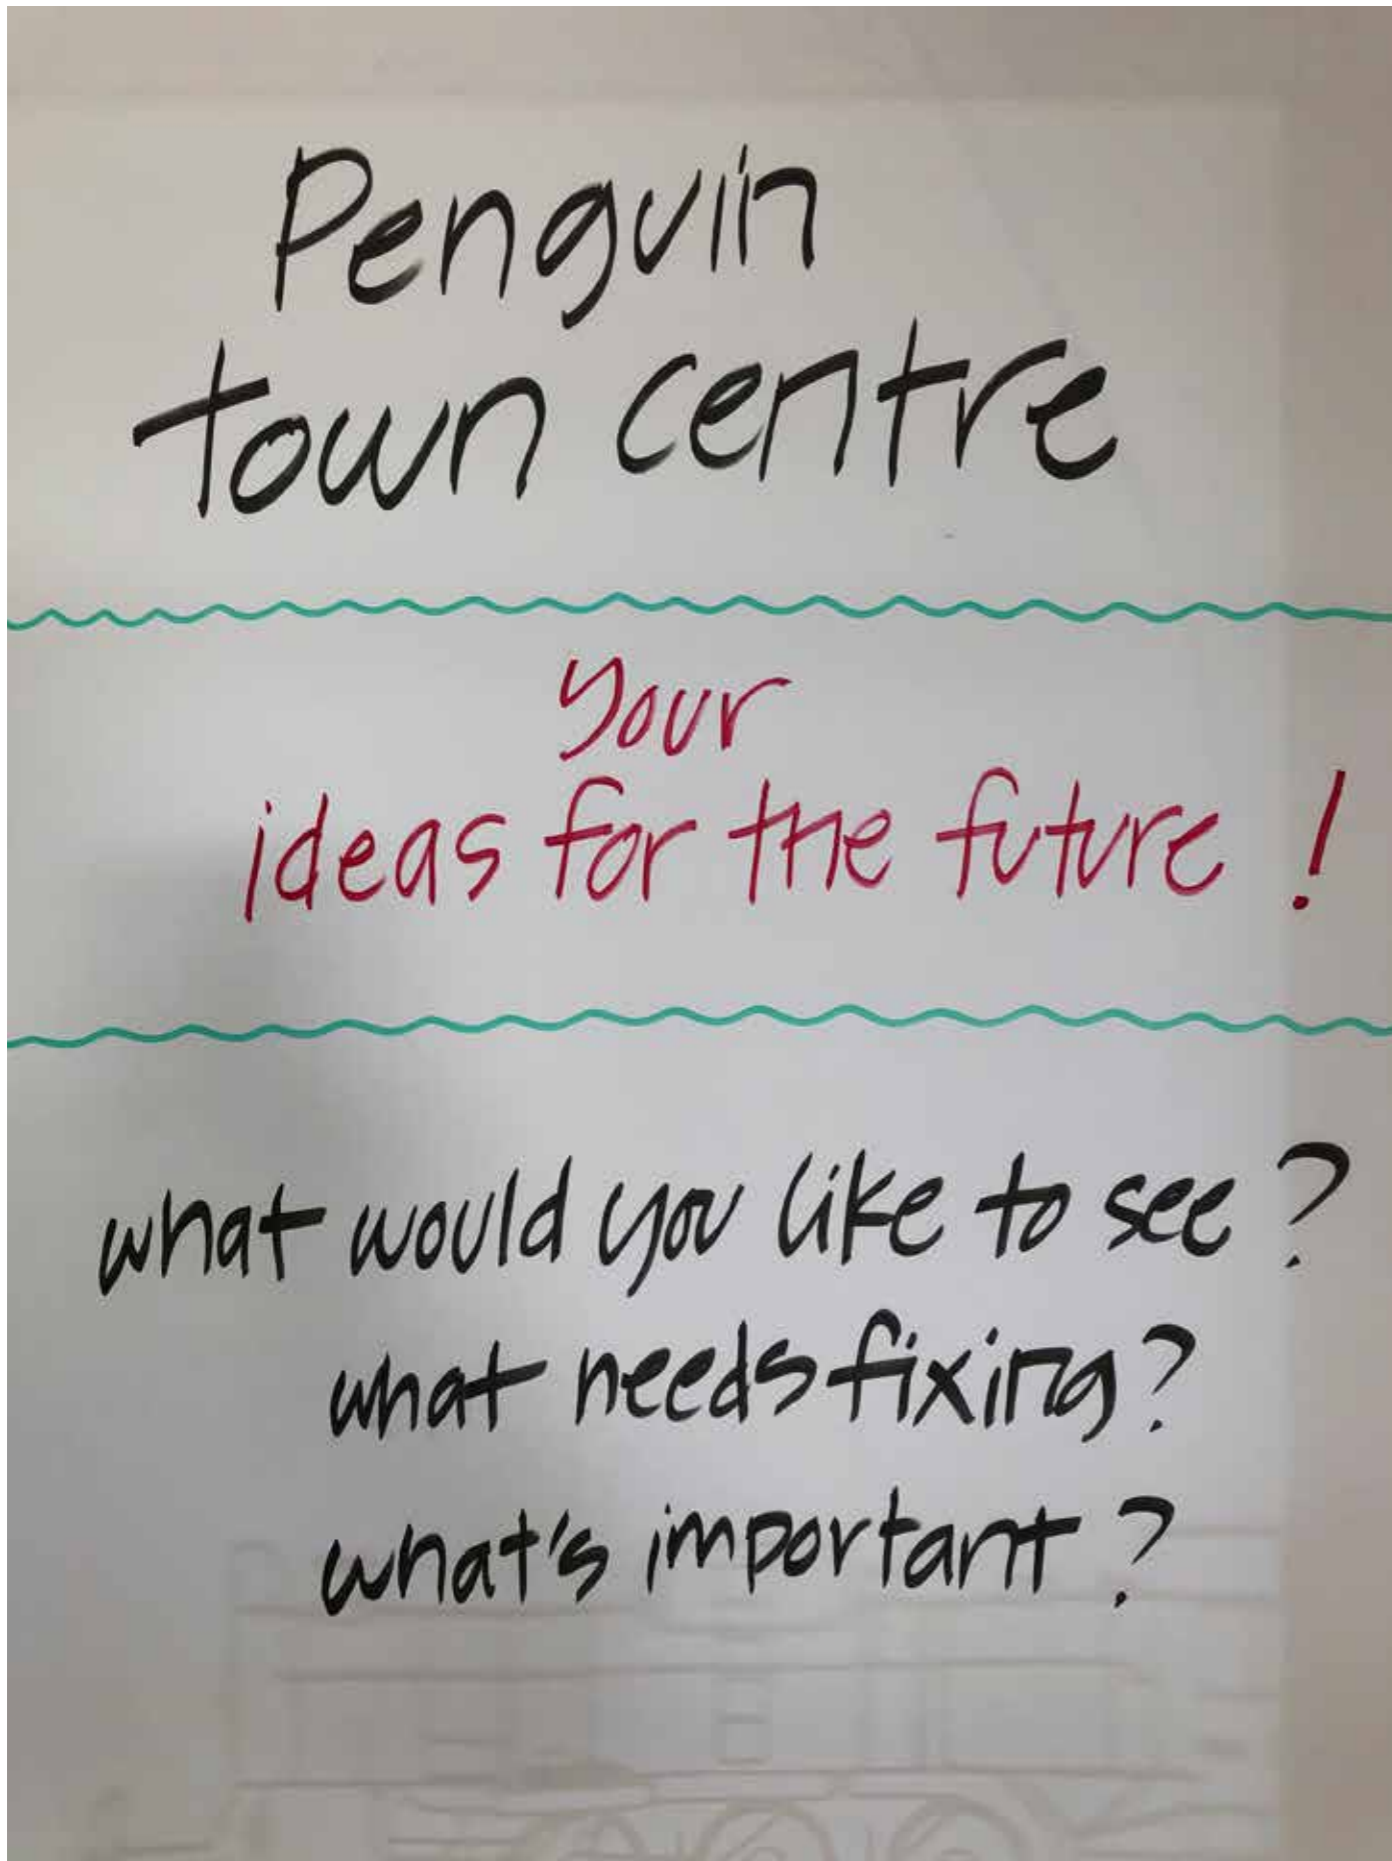 Penguin
town centre
Your
ideas for the future !
what would you like to see ?
what needs fixing ?
what's important ?